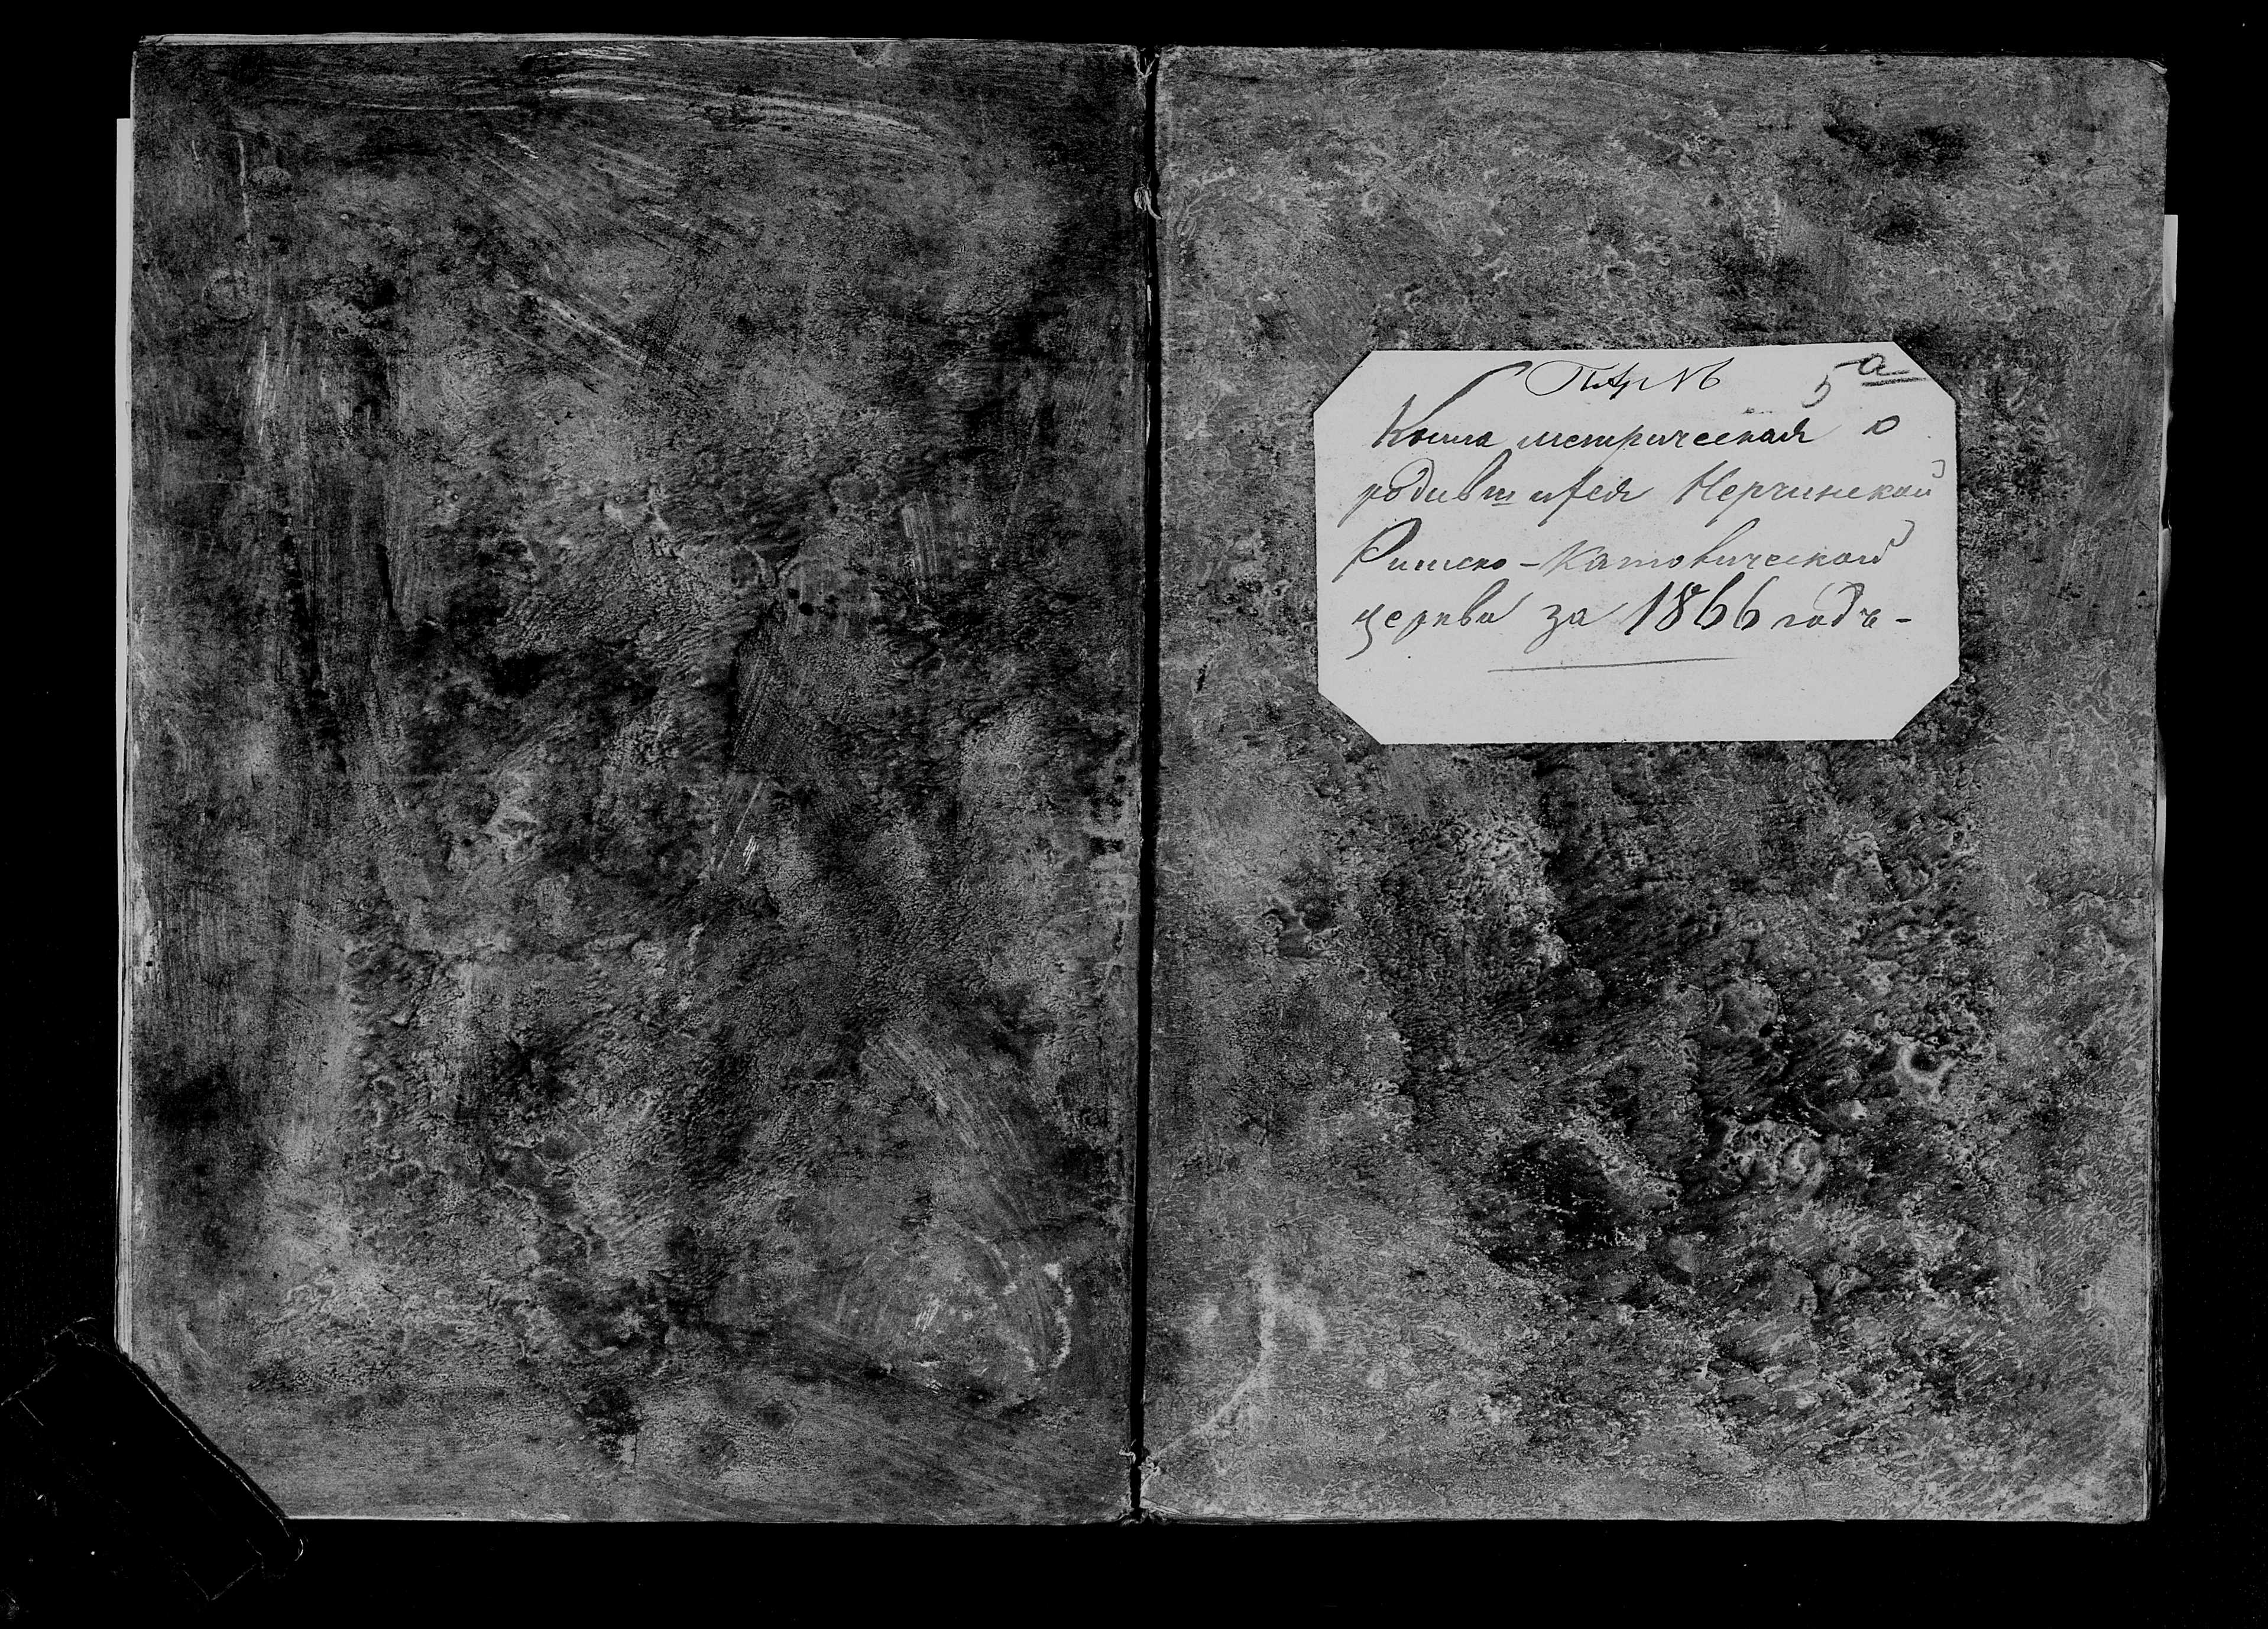 5а
Книга метрическая о
родившихся Нерчинской
Римско-Католической
церкви за 1866 годъ-